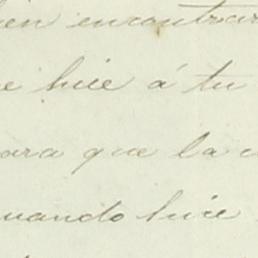 bien encontrar
e hice á tu
para que la
cuando hice